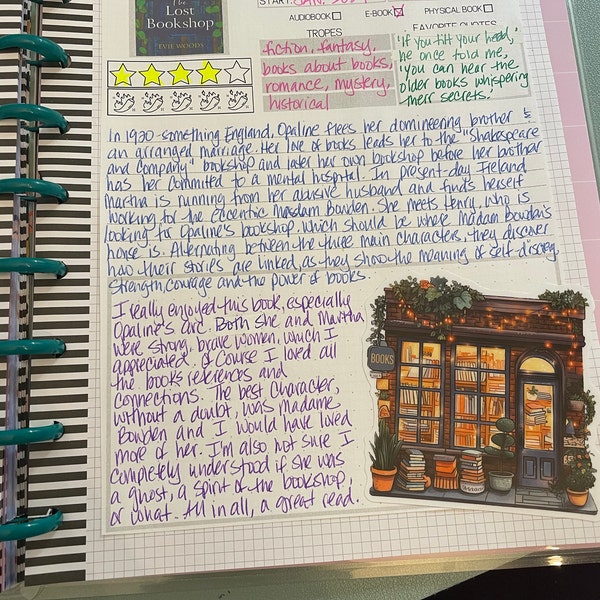 The
Lost
Bookshop
EVIE WOODS
START: JAN.
AUDIOBOOK
E-BOOK
PHYSICAL BOOK
TROPES
FAVORITE QUOTES
fiction, fantasy,
books about books,
romance, mystery,
historical
"If you tilt your head,"
he once told me,
"you can hear the
older books whispering
their secrets."
In 1920-something England, Opaline flees her domineering brother &
an arranged marriage. Her love of books leads her to the "Shakespeare
and Company" bookshop and later her own bookshop before her brother
has her committed to a mental hospital. In present-day Ireland
Martha is running from her abusive husband and finds herself
working for the eccentric Madam Bowden. She meets Henry, who is
looking for Opaline's bookshop, which should be where Madam Bowden's
house is. Alternating between the three main characters, they discover
how their stories are linked, as they show the meaning of self-discovery,
strength, courage and the power of books.
I really enjoyed this book, especially
Opaline's arc. Both she and Martha
were strong, brave women, which I
appreciated. Of course I loved all
the books references and
connections. The best character,
without a doubt, was Madame
Bowden and I would have loved
more of her. I'm also not sure I
completely understood if she was
a ghost, a spirit of the bookshop,
or what. All in all, a great read!
BOOKS